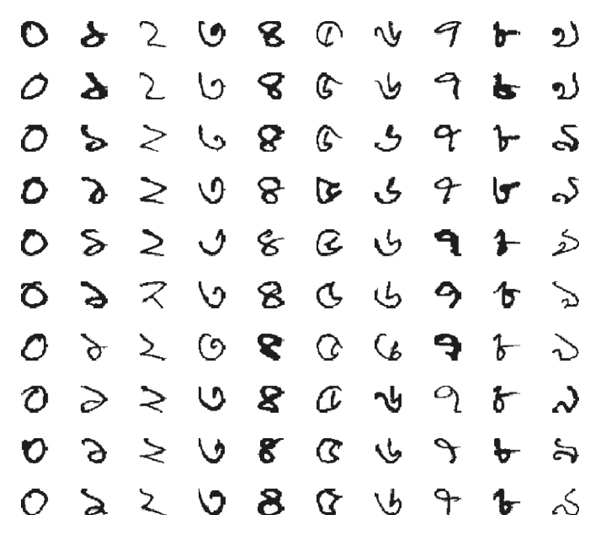 ০ ১ ২ ৩ ৪ ৫ ৬ ৭ ৮ ৯
০ ১ ২ ৩ ৪ ৫ ৬ ৭ ৮ ৯
০ ১ ২ ৩ ৪ ৫ ৬ ৭ ৮ ৯
০ ১ ২ ৩ ৪ ৫ ৬ ৭ ৮ ৯
০ ১ ২ ৩ ৪ ৫ ৬ ৭ ৮ ৯
০ ১ ২ ৩ ৪ ৫ ৬ ৭ ৮ ৯
০ ১ ২ ৩ ৪ ৫ ৬ ৭ ৮ ৯
০ ১ ২ ৩ ৪ ৫ ৬ ৭ ৮ ৯
০ ১ ২ ৩ ৪ ৫ ৬ ৭ ৮ ৯
০ ১ ২ ৩ ৪ ৫ ৬ ৭ ৮ ৯